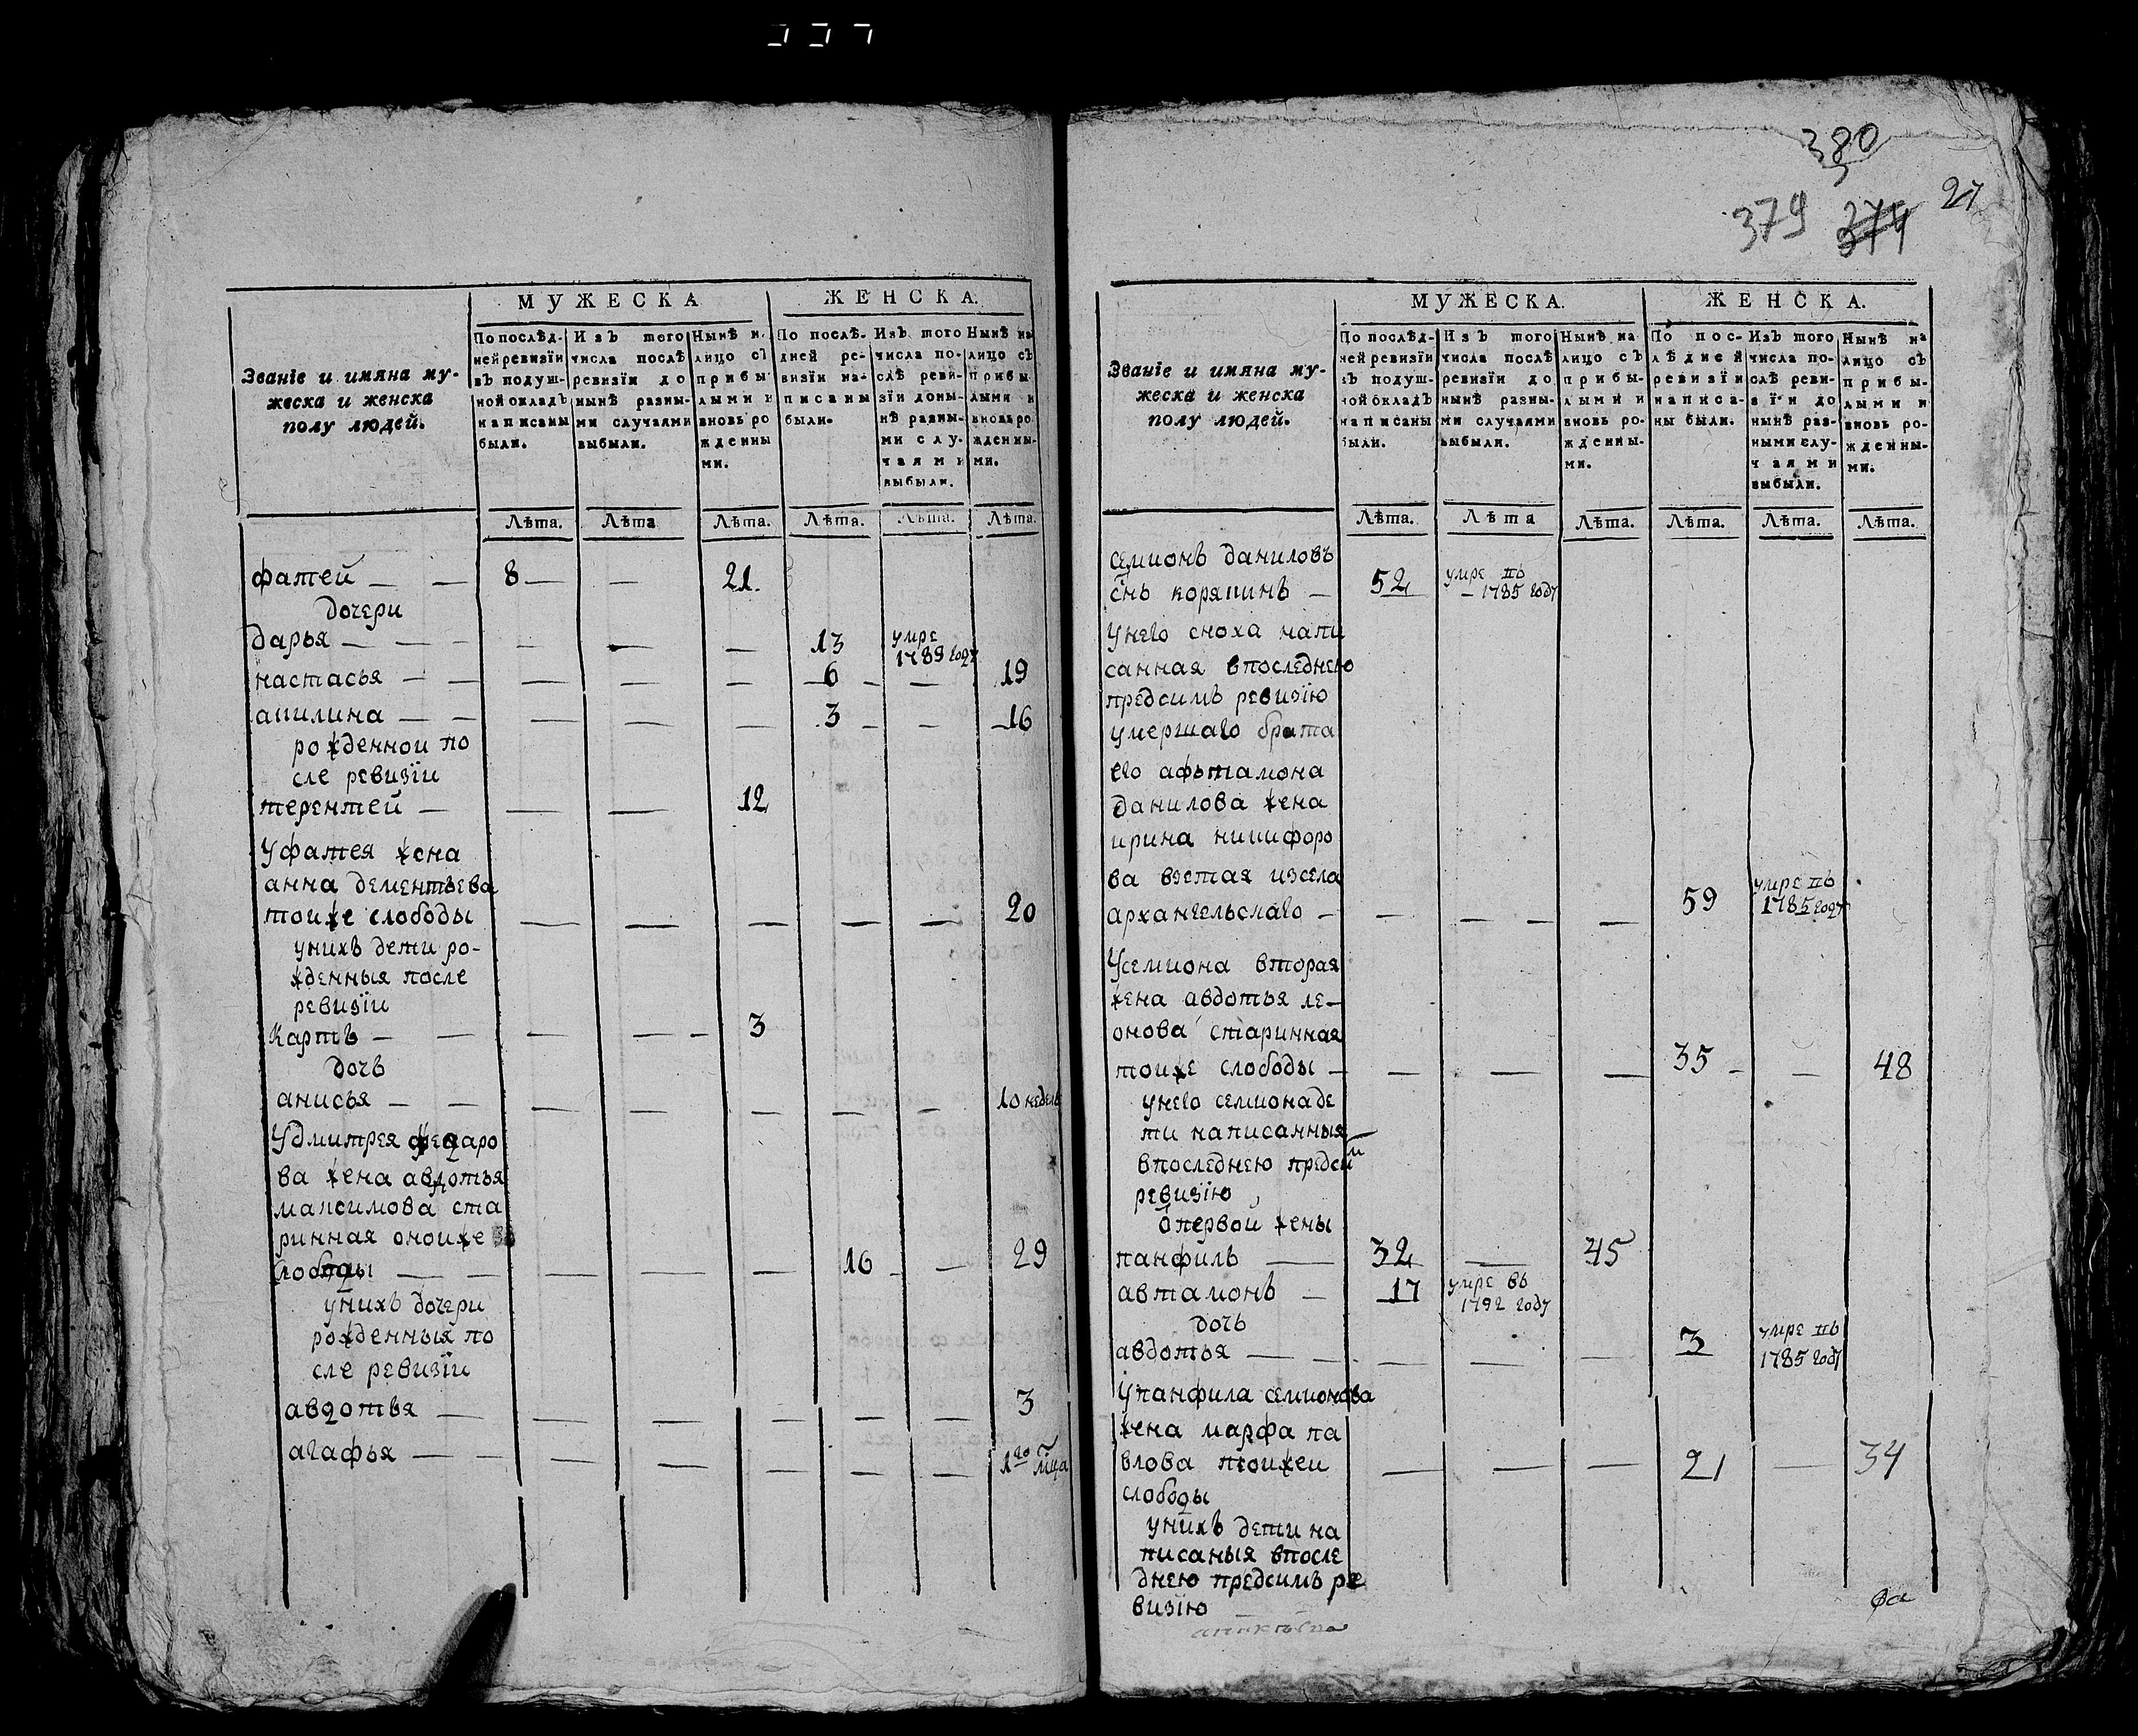 380
379 374 27
МУЖЕСКА
ЖЕНСКА.
Званіе и имяна му-
жеска и женска
полу людей.
По послѣд-
ней ревизіи
въ подуш-
ной окладъ
написаны
были.
Изъ того
числа послѣ
ревизіи до
нынѣ разны-
ми случаями
выбыли.
Нынѣ н
лицо съ
прибы
лыми и
вновь ро
жденны
ми.
По послѣ-
дней ре-
визіи на-
писаны
были.
Изъ того
числа по-
слѣ реви-
зіи доны-
нѣ разны-
ми слу-
чаями
выбыли.
Нынѣ на
лицо съ
прибы
лыми и
вновь ро
жденны-
ми.
Лѣта. Лѣта Лѣта. Лѣта. Лѣта. Лѣта.
фатей — — 8 — — 21.
дочери
дарья — — — — — — 13 умре 1789 году
настасья — — — — — 6 — — 19
апилина — — — — — 3 — — 16
рожденнои по
сле ревизїи
терентей — — — 12
Уфатея жена
анна дементьева
тоиже слободы — — — — — 20
унихъ дети ро-
жденныя после
ревизїи
Карпъ — — — — — 3
дочь
анисья — — — — — — — 10 недель
Удмитрея федаро
ва жена авдотья
максимова ста
ринная оноиже
слободы — — — — — 16 — — 29
унихъ дочери
рожденныя по
сле ревизїи
авдотья — — — — — — 3
агафья — — — — — — — 1го мца
МУЖЕСКА.
ЖЕНСКА.
Званіе и имяна му-
жеска и женска
полу людей.
По послѣд-
ней ревизіи
въ подуш-
ной окладъ
написаны
были.
Изъ того
числа послѣ
ревизіи до
нынѣ разны-
ми случаями
выбыли.
Нынѣ на
лицо съ
прибы-
лыми и
вновь ро-
жденны-
ми.
По пос-
лѣдней
ревизіи
написа-
ны были.
Изъ того
числа по-
слѣ реви-
зіи до
нынѣ раз-
ными слу-
чаями
выбыли.
Нынѣ на
лицо съ
прибы-
лыми и
вновь ро-
жденны-
ми.
Лѣта. Лѣта Лѣта. Лѣта. Лѣта. Лѣта.
семионъ даниловъ
снъ корякинъ — 52 умре въ — 1785 году
Унего сноха напи
санная впоследнею
предсимъ ревизїю
умершаго брата
его афътамона
данилова жена
ирина никифоро
ва взятая изсела
архангельскаго — — — — — 59 умре въ 1785 году
Усемиона вторая
жена авдотья ле-
онова старинная
тоиже слободы — — — — 35 — — 48
унего семиона де
ти написанныя
впоследнею предсим
ревизїю
ѿпервой жены
панфилъ — 32 — 45
автамонъ — 17 умре въ 1792 году
дочь
авдотья — — — — — 3 умре въ 1785 году
Упанфила семионова
жена марфа па
влова тоижеи — — — 21 — 34
слободы
унихъ дети на
писаныя впосле
днею предсимъ ре
визїю